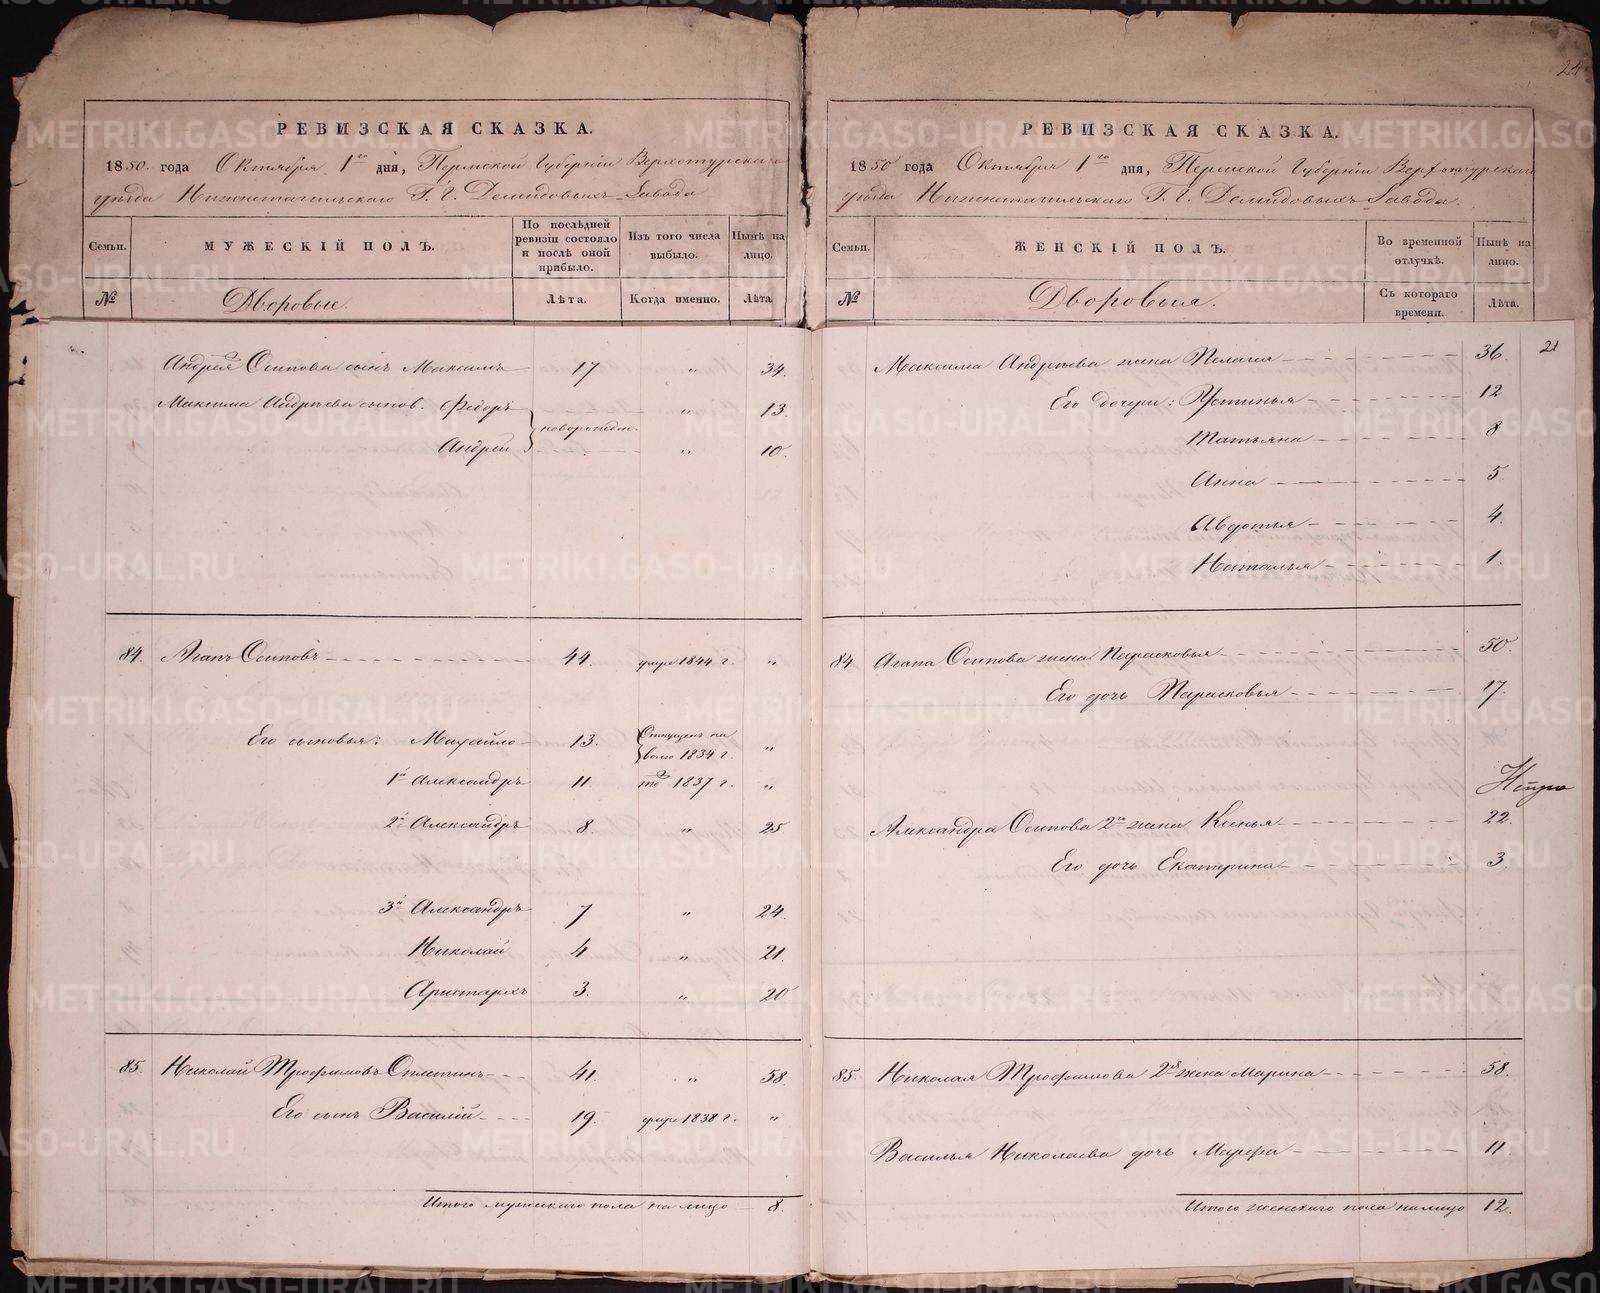 24
РЕВИЗСКАЯ СКАЗКА.
1850. года Октября 1го дня, Пермской Губерніи Верхотурскаго
уѣзда Нижнетагильскаго Г. Г. Демидовыхъ Завода
Семьи. МУЖЕСКІЙ ПОЛЪ. По послѣдней ревизіи состояло и послѣ оной прибыло. Изъ того числа выбыло. Нынѣ на лицо.
№ Дворовые. Лѣта. Когда именно. Лѣта
Андрея Осипова сынъ Максимъ 17 " 34.
Максима Андрѣева сынов. Федоръ новорожден. " 13.
Андрей " 10.
84. Агапъ Осиповъ 44. умре 1844 г. "
Его сыновья: Михайло 13. Отпущен на волю 1834 г. "
1й Александръ 11. то 1837 г. "
2й Александръ 8. " 25
3й Александръ 7 " 24.
Николай 4 " 21.
Аристархъ 3. " 20
85. Николай Трофимовъ 41. " 58.
Его сынъ Василій 19. умре 1838 г. "
Итого мужскаго пола на лицо 8.
РЕВИЗСКАЯ СКАЗКА.
1850 года Октября 1го дня, Пермской Губерніи Верхотурскаго
уѣзда Нижнетагильскаго Г. Г. Демидовыхъ Завода.
Семьи. ЖЕНСКІЙ ПОЛЪ. Во временной отлучкѣ. Нынѣ на лицо.
№ Дворовыя. Съ котораго времени. Лѣта.
21
Максима Андрѣева жена Пелагея 36.
Его дочери: Устинья 12
Татьяна 8
Анна 5.
Авдотья 4.
Наталья 1.
84. Агапа Осипова жена Парасковья 50.
Его дочь Парасковья 17.
Александра Осипова 2го жена Ксенья 22.
Его дочь Екатерина 3.
85. Николая Трофимова 2я жена Марина 58.
Василья Николаева дочь Марфа 11
Итого женскаго пола на лицо 12.
METRIKI.GASO-URAL.RU